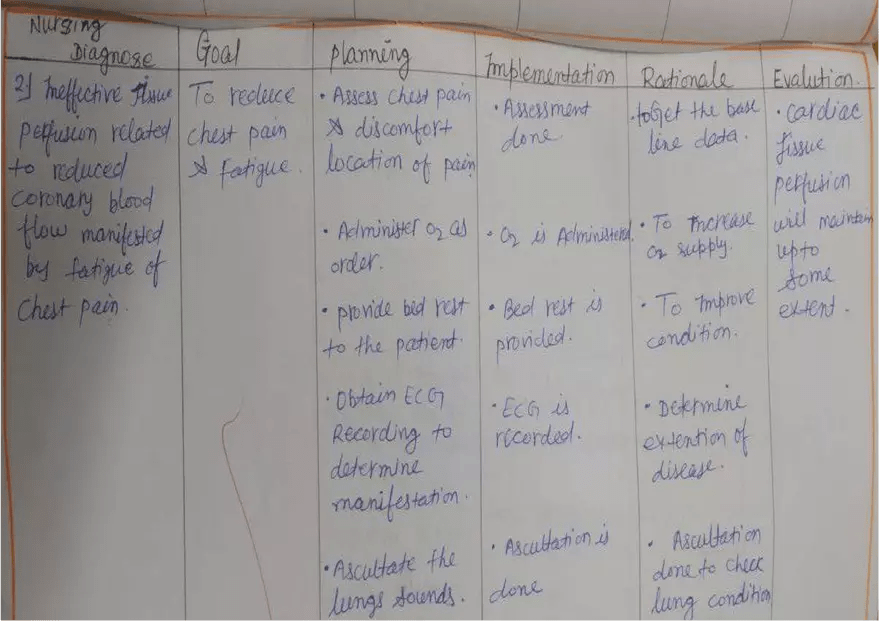 Nursing
Diagnose
2) Ineffective tissue
perfusion related
to reduced
coronary blood
flow manifested
by fatigue of
Chest pain.
Goal
To reduce
chest pain
& fatigue.
planning
• Assess chest pain
& discomfort
location of pain
• Administer O2 as
order.
• provide bed rest
to the patient.
• Obtain ECG
Recording to
determine
manifestation.
• Ascultate the
lungs sounds.
Implementation
• Assessment
done
• O2 is Administered.
• Bed rest is
provided.
• ECG is
recorded.
• Ascultation is
done
Rationale
• to Get the base
line data.
• To increase
O2 supply.
• To improve
condition.
• Determine
extention of
disease.
• Ascultation
done to check
lung condition
Evalution.
• cardiac
tissue
perfusion
will maintain
upto
some
extent.